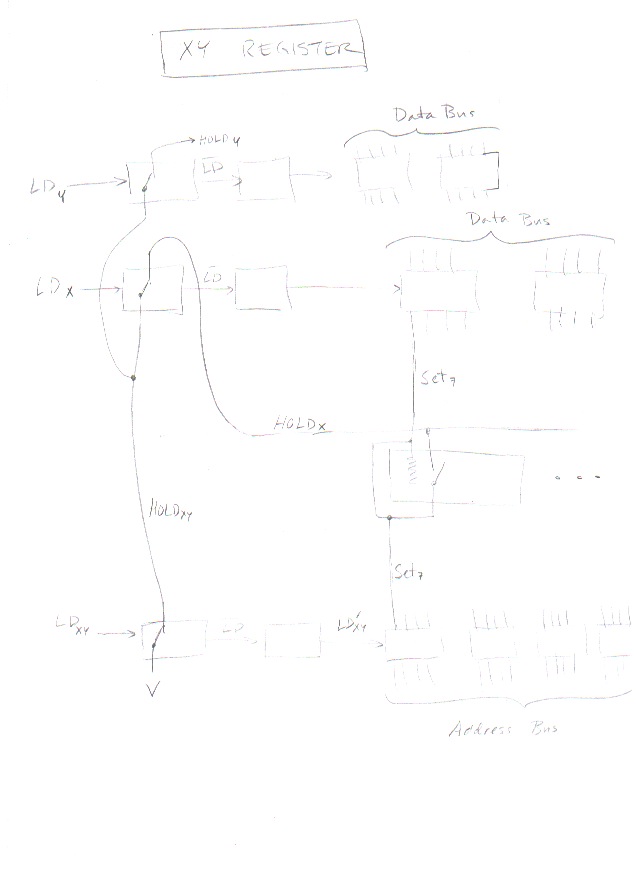 XY REGISTER
Data Bus
HOLDY
LDY
LD
Data Bus
LDX
LD
Set7
HOLDX
. . .
HOLDXY
Set7
LDXY
LD
LD'XY
V
Address Bus